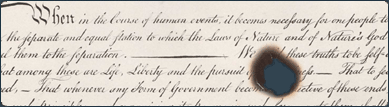 When in the Course of human events, it becomes necessary for one people
the separate and equal station to which the Laws of Nature and of Nature's God
them to the separation. We these truths to be self-
at among these are Life, Liberty and the pursuit of — That to
— That whenever any Form of Government becomes of these ends